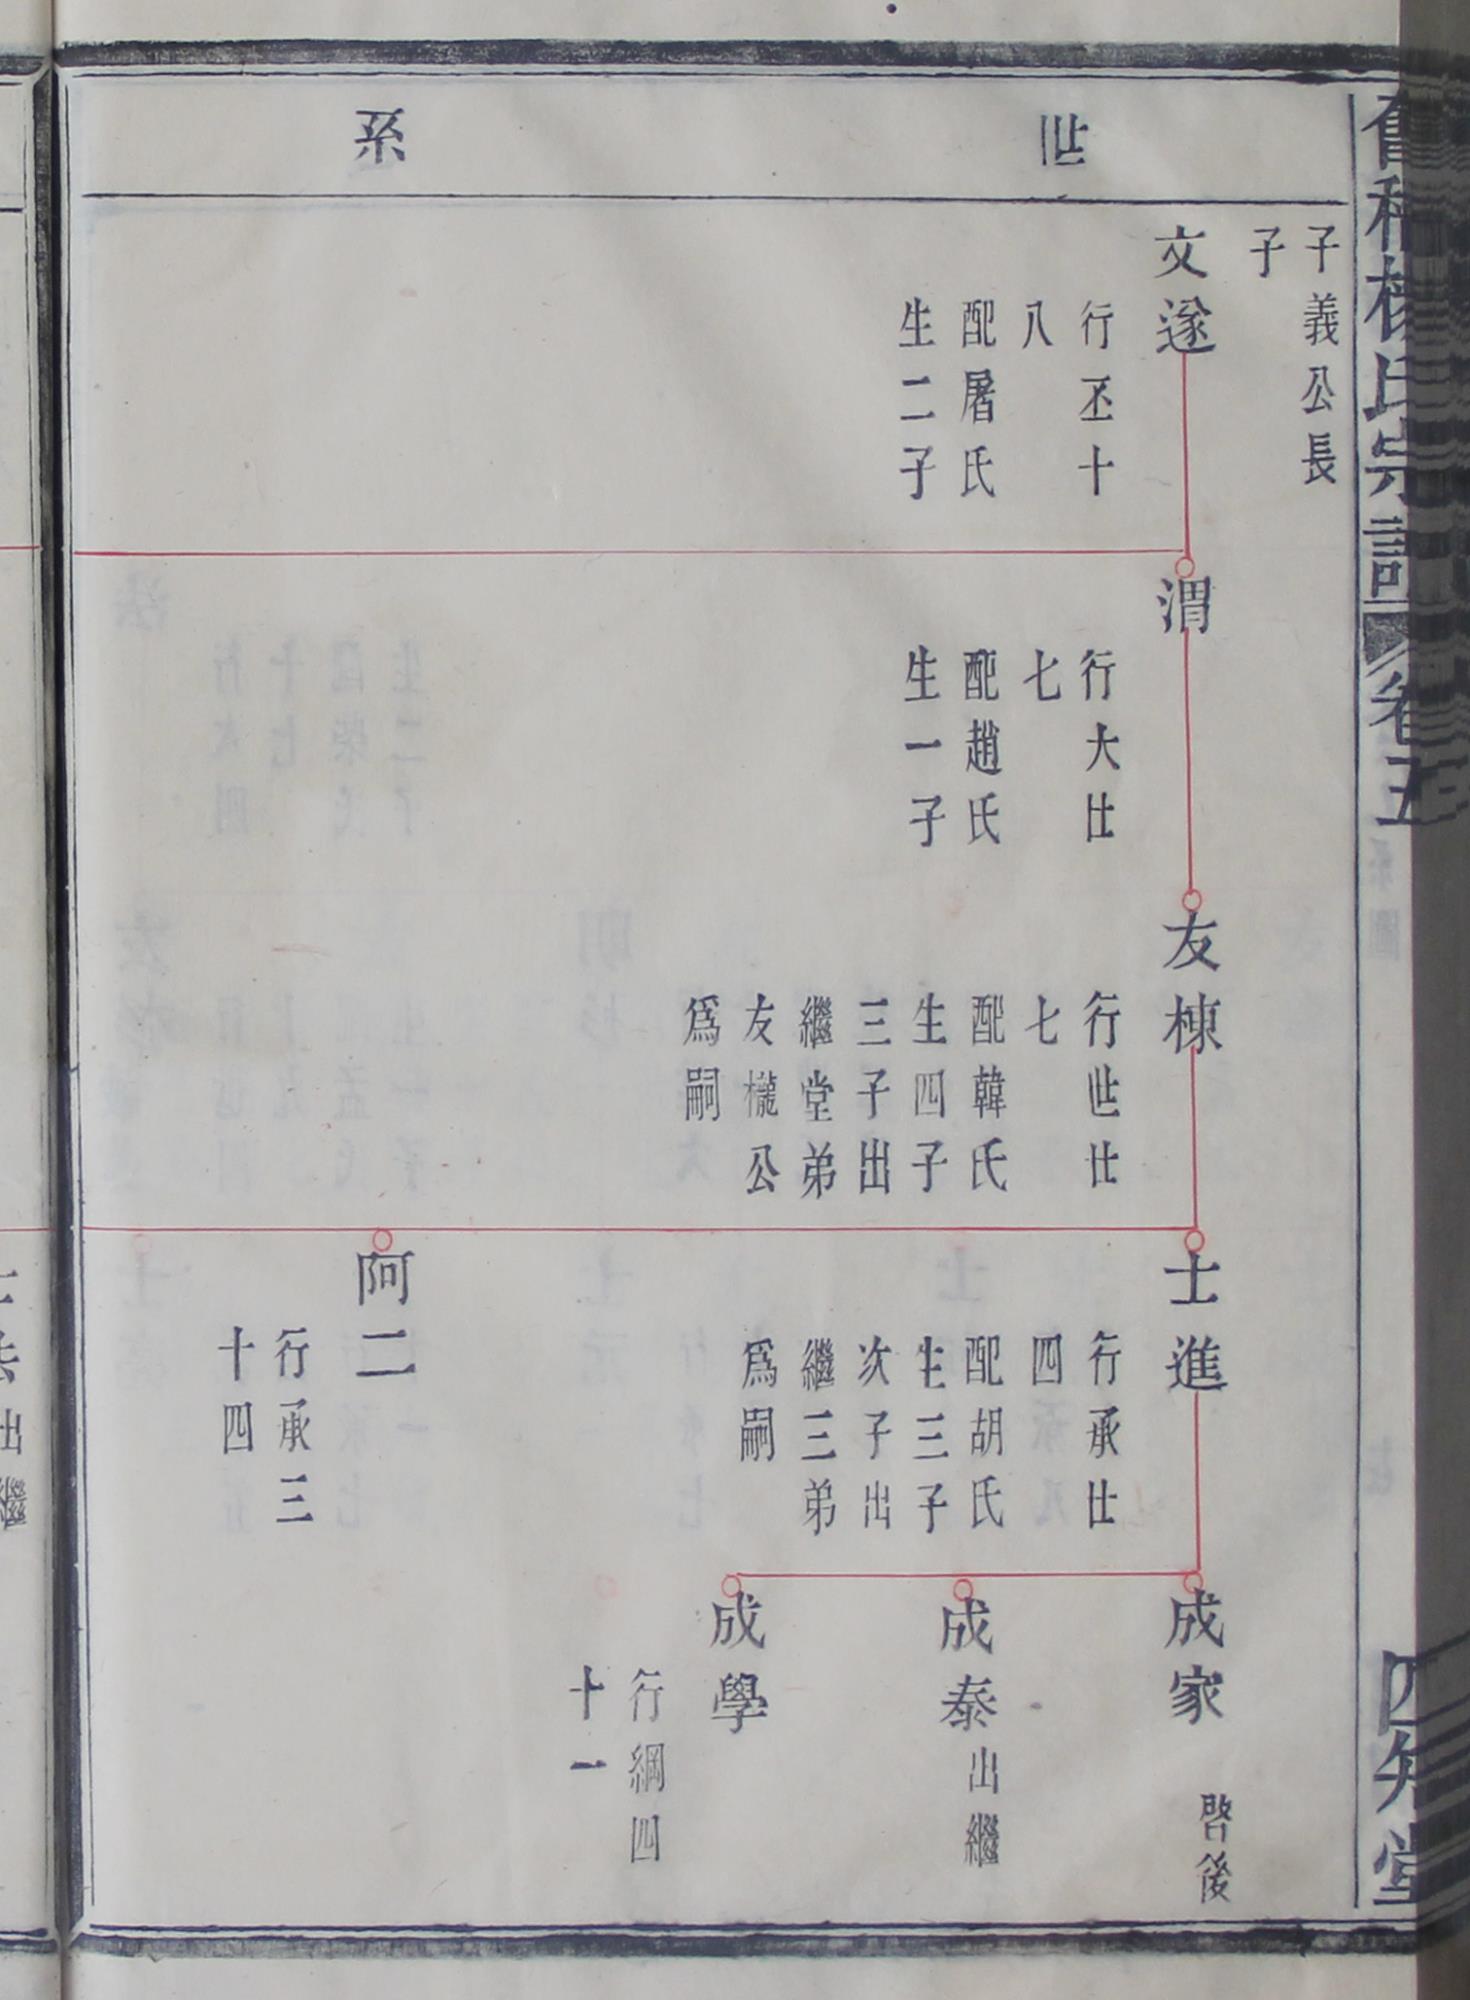 世系
子義公長
子
文遂
行丕十
八
配屠氏
生二子
渭
行大廿
七
配趙氏
生一子
友棟
行世廿
七
配韓氏
生四子
三子出
繼堂弟
友櫳公
爲嗣
士進
行承廿
四
配胡氏
生三子
次子出
繼三弟
爲嗣
阿二
行承三
十四
成家
啓後
成泰
出繼
成學
行綱四
十一
氏宗譜
卷五
四知堂